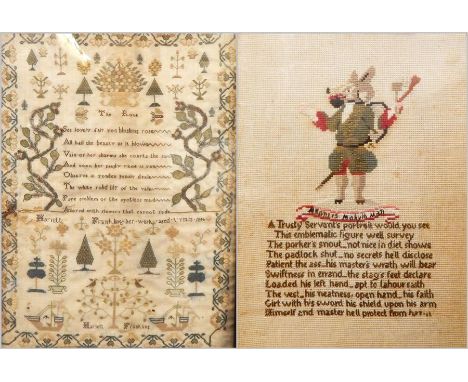 The Rose
See lovely fair yon blushing rose
All hail the beauty as it blows
Vain of her charms she courts the sun
And soon her
Observe a
The white robd lily of the vale
Pure emblem of the spotless
Adored with charms that cannot fade
Harriett
her work aged
Harriett
Manners Makyth Man
A Trusty Servants portrait would you see
This emblematic figure well survey
The porker's snout_not nice in diet shows
The padlock shut_no secrets hell disclose
Patient the ass_his masters wrath will bear
Swiftness in errand_the stag's feet declare
Loaded his left hand_apt to labour faith
The vest_his neatness, open hand_his faith
Girt with his sword his shield upon his arm
Himself and master hell protect from harm